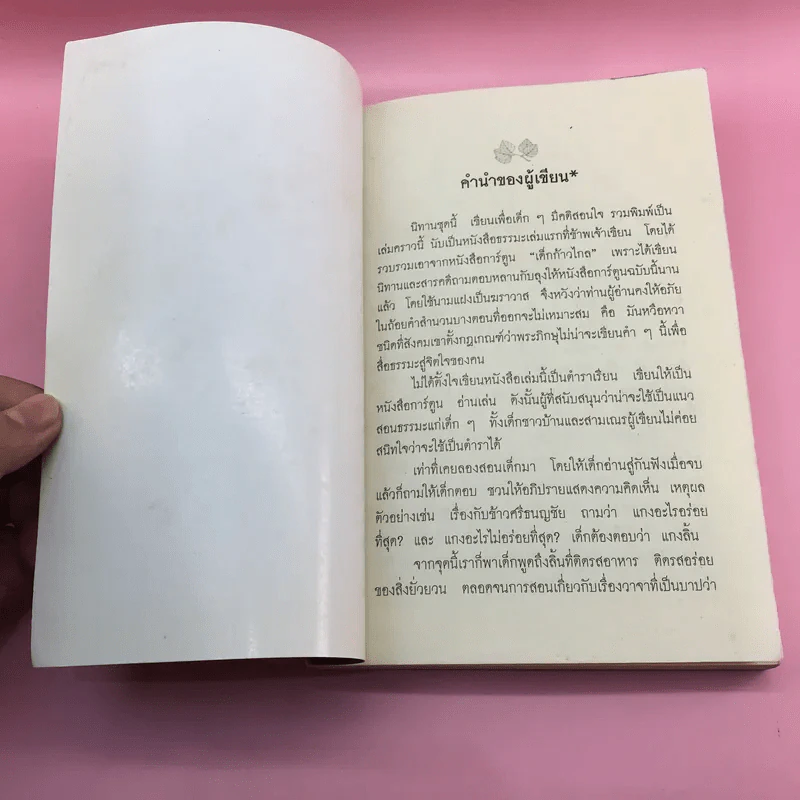 คำนำของผู้เขียน*
นิทานชุดนี้ เขียนเพื่อเด็ก ๆ มีคติสอนใจ รวมพิมพ์เป็น
เล่มคราวนี้ นับเป็นหนังสือธรรมะเล่มแรกที่ข้าพเจ้าเขียน โดยได้
รวบรวมเอาจากหนังสือการ์ตูน "เด็กก้าวไกล" เพราะได้เขียน
นิทานและสารคดีถามตอบหลานกับลุงให้หนังสือการ์ตูนฉบับนี้นาน
แล้ว โดยใช้นามแฝงเป็นฆราวาส จึงหวังว่าท่านผู้อ่านคงให้อภัย
ในถ้อยคำสำนวนบางตอนที่ออกจะไม่เหมาะสม คือ มันหวือหวา
ชนิดที่สังคมเขาตั้งกฎเกณฑ์ว่าพระภิกษุไม่น่าจะเขียนคำ ๆ นี้เพื่อ
สื่อธรรมะสู่จิตใจของคน
ไม่ได้ตั้งใจเขียนหนังสือเล่มนี้เป็นตำราเรียน เขียนให้เป็น
หนังสือการ์ตูน อ่านเล่น ดังนั้นผู้ที่สนับสนุนว่าน่าจะใช้เป็นแนว
สอนธรรมะแก่เด็ก ๆ ทั้งเด็กชาวบ้านและสามเณรผู้เขียนไม่ค่อย
สนิทใจว่าจะใช้เป็นตำราได้
เท่าที่เคยลองสอนเด็กมา โดยให้เด็กอ่านสู่กันฟังเมื่อจบ
แล้วก็ถามให้เด็กตอบ ชวนให้อภิปรายแสดงความคิดเห็น เหตุผล
ตัวอย่างเช่น เรื่องกับข้าวศรีธนญชัย ถามว่า แกงอะไรอร่อย
ที่สุด? และ แกงอะไรไม่อร่อยที่สุด? เด็กต้องตอบว่า แกงลิ้น
จากจุดนี้เราก็พาเด็กพูดถึงลิ้นที่ติดรสอาหาร ติดรสอร่อย
ของสิ่งยั่วยวน ตลอดจนการสอนเกี่ยวกับเรื่องวาจาที่เป็นบาปว่า